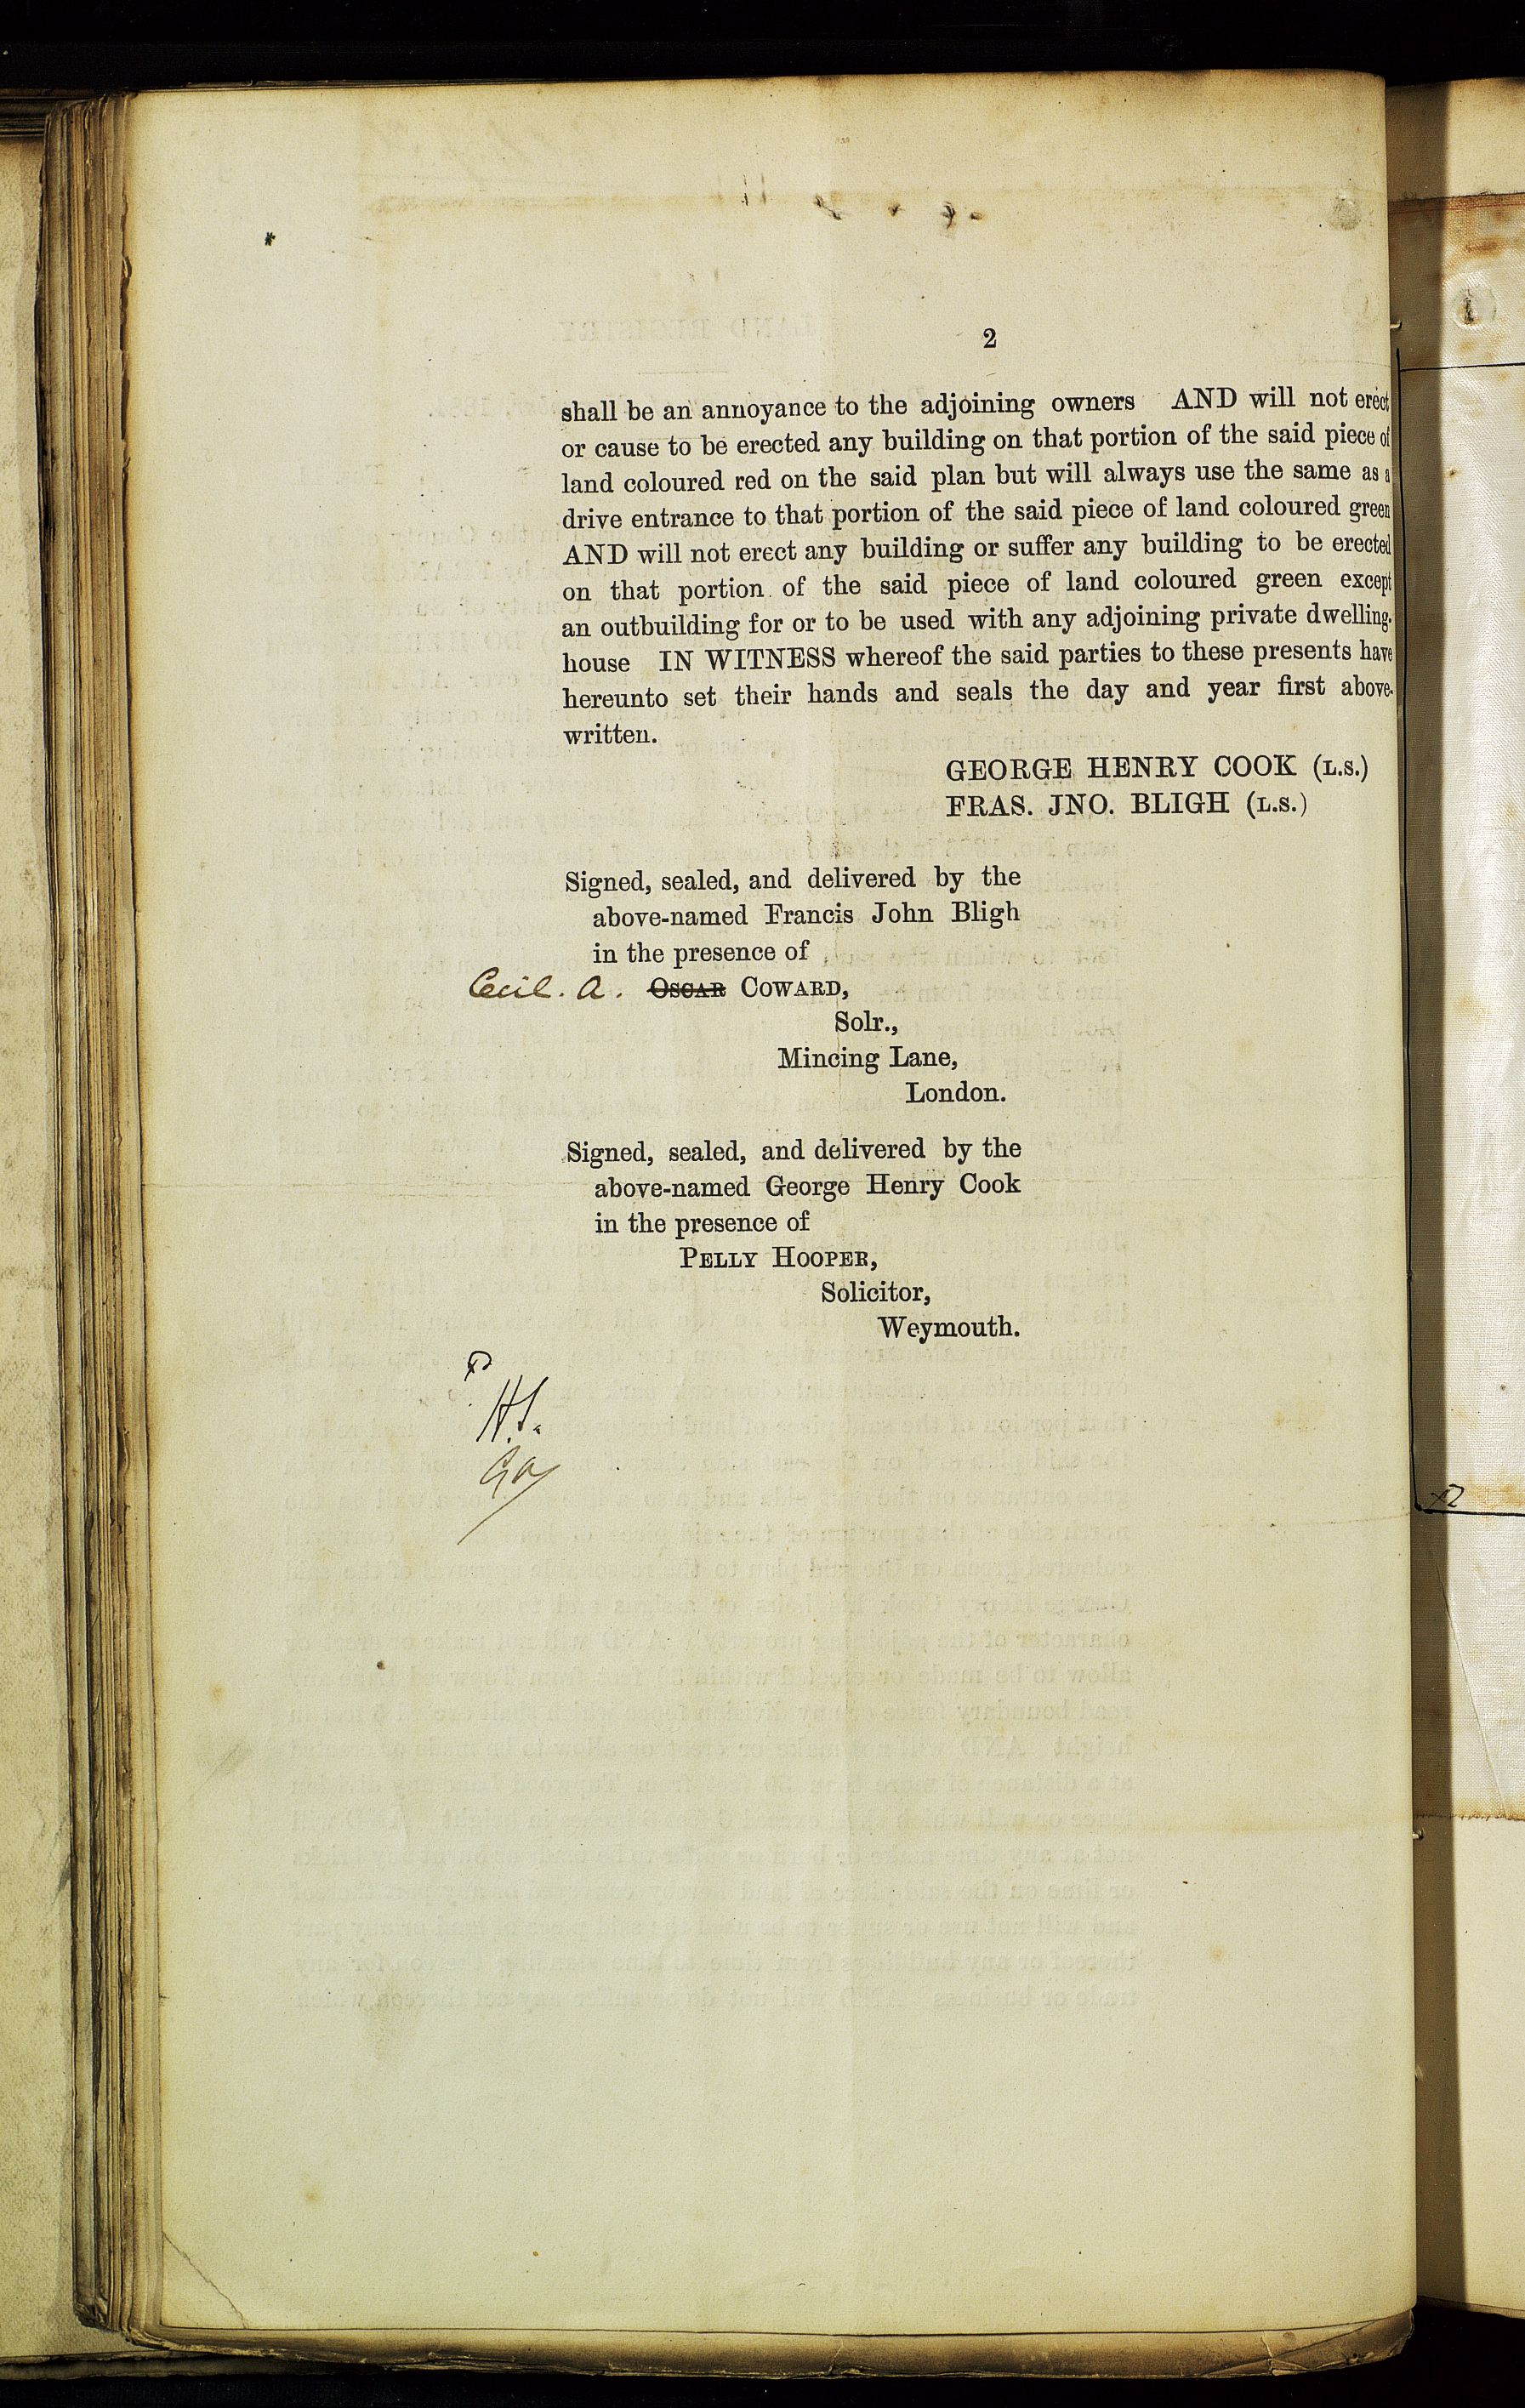 2
shall be an annoyance to the adjoining owners AND will not erect
or cause to be erected any building on that portion of the said piece of
land coloured red on the said plan but will always use the same as a
drive entrance to that portion of the said piece of land coloured green
AND will not erect any building or suffer any building to be erected
on that portion of the said piece of land coloured green except
an outbuilding for or to be used with any adjoining private dwelling-
house IN WITNESS whereof the said parties to these presents have
hereunto set their hands and seals the day and year first above-
written.
GEORGE HENRY COOK (L.S.)
FRAS. JNO. BLIGH (L.S.)
Signed, sealed, and delivered by the
above-named Francis John Bligh
in the presence of
Cecil. A. OSCAR COWARD,
Solr.,
Mincing Lane,
London.
Signed, sealed, and delivered by the
above-named George Henry Cook
in the presence of
PELLY HOOPER,
Solicitor,
Weymouth.